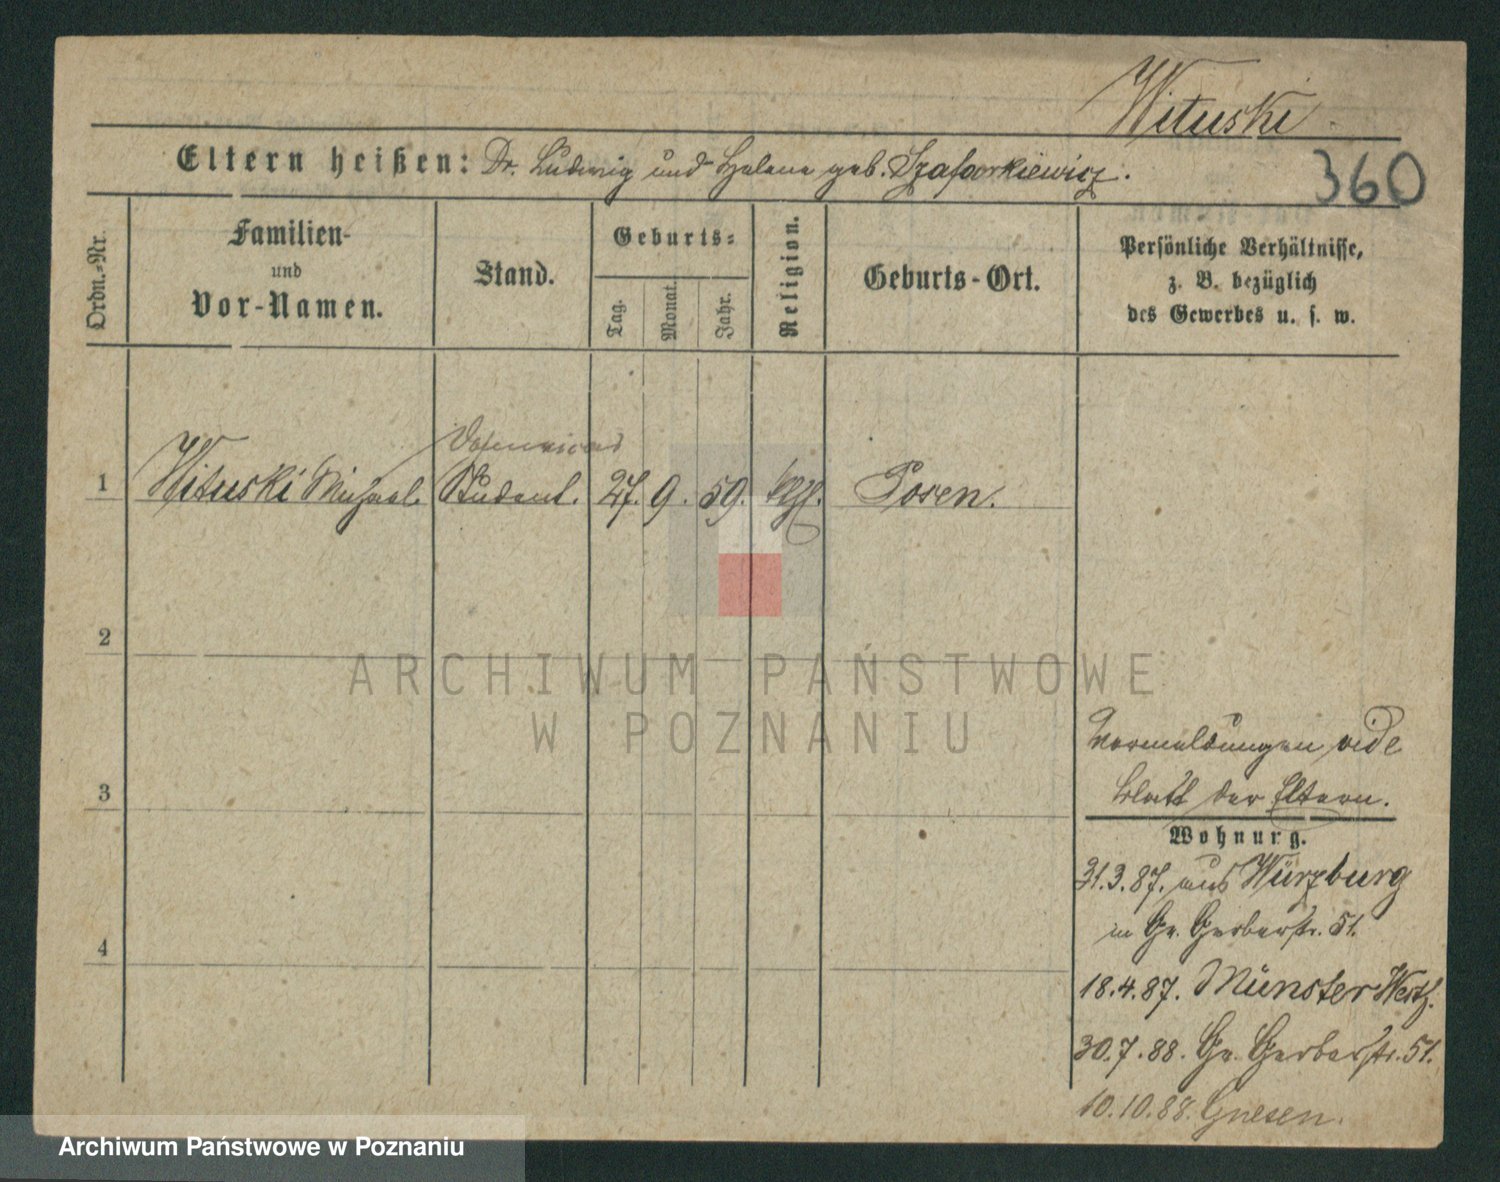 Wituski
Eltern heißen: Dr. Ludwig und Helena geb. Szafarkiewicz.
360
Ordn.-Nr.
Familien-
und
Vor-Namen.
Stand.
Geburts-
Tag.
Monat.
Jahr.
Religion.
Geburts-Ort.
Persönliche Verhältnisse,
z. B. bezüglich
des Gewerbes u. s. w.
1 Wituski Michael. Student. 27. 9. 59. kth. Posen.
2
3
4
Vormeldungen vide
Blatt der Eltern.
Wohnung.
31.3.87. aus Würzburg
in Gr. Gerberstr. 51.
18.4.87. Münster Westf.
30.7.88. Gr. Gerberstr. 51.
10.10.88. Gnesen.
ARCHIWUM PAŃSTWOWE
W POZNANIU
Archiwum Państwowe w Poznaniu